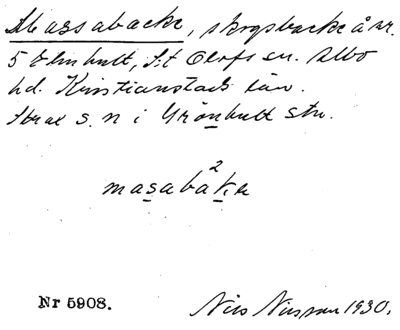 Massabacke, skogsbacke å nr.
5 Elinhult, S:t Olofs sn. Albo
hd. Kristianstads län.
Strax s. n i Grönhult stn.
masaba²kⱥ
Nr 5908.
Nils Nilsson 1930.